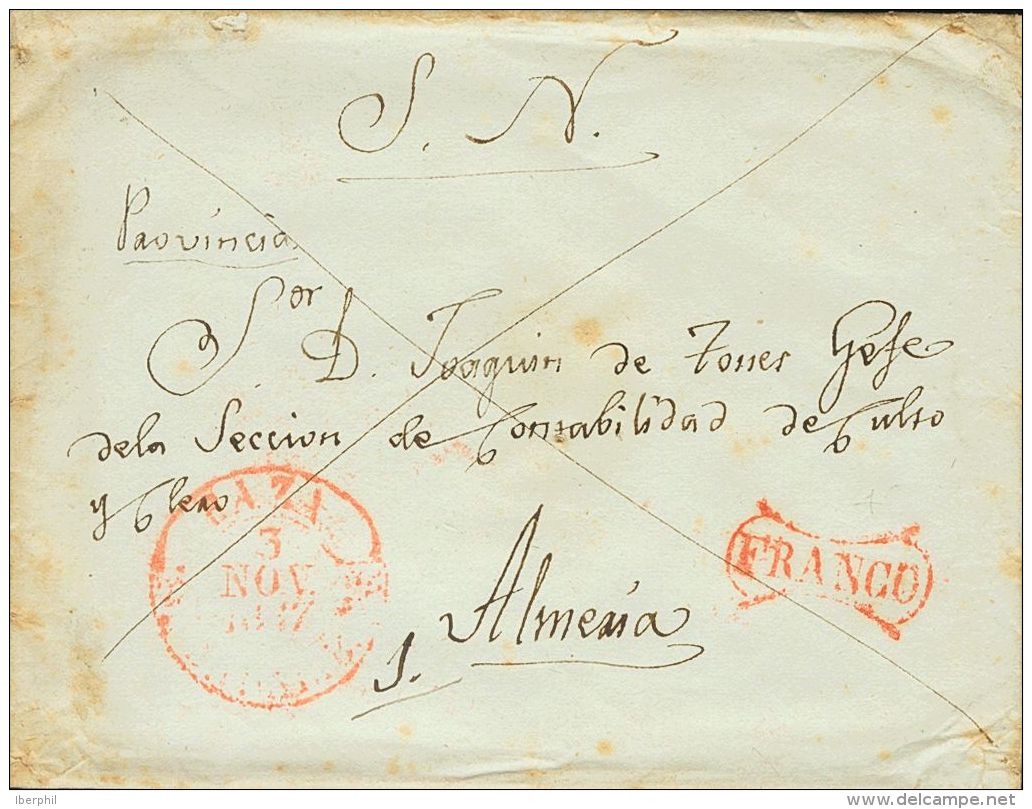 S. N.
Provincia
S.or D. Joaquin de Torres Gefe
de la Seccion de Contabilidad de Culto
y Clero
BAZA
3
NOV.
1847
FRANCO
Almeria
1.
Iberphil
delcampe.net